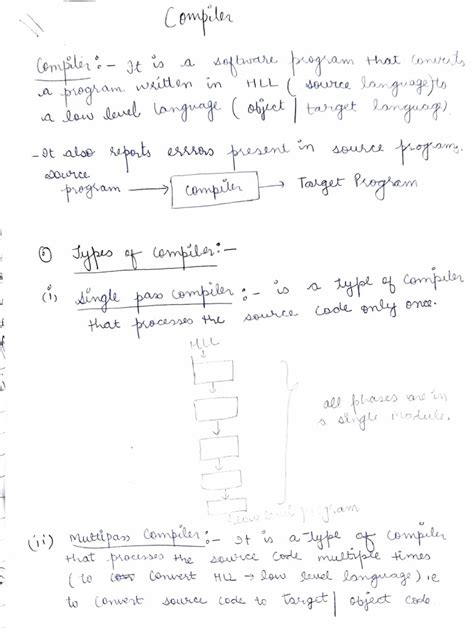 Compiler
Compiler:- It is a software program that converts
a program written in HLL ( source language) to
a low level language ( object | target language).
- It also reports errors present in source program.
source
program → compiler → Target Program
Types of compiler:-
(i) Single pass compiler :- is a type of compiler
that processes the source code only once.
HLL
all phases are in
a single module.
low level program
(ii) Multipass Compiler:- It is a type of compiler
that processes the source code multiple times
( to convert HLL → low level language) i.e
to convert source code to target | object code.